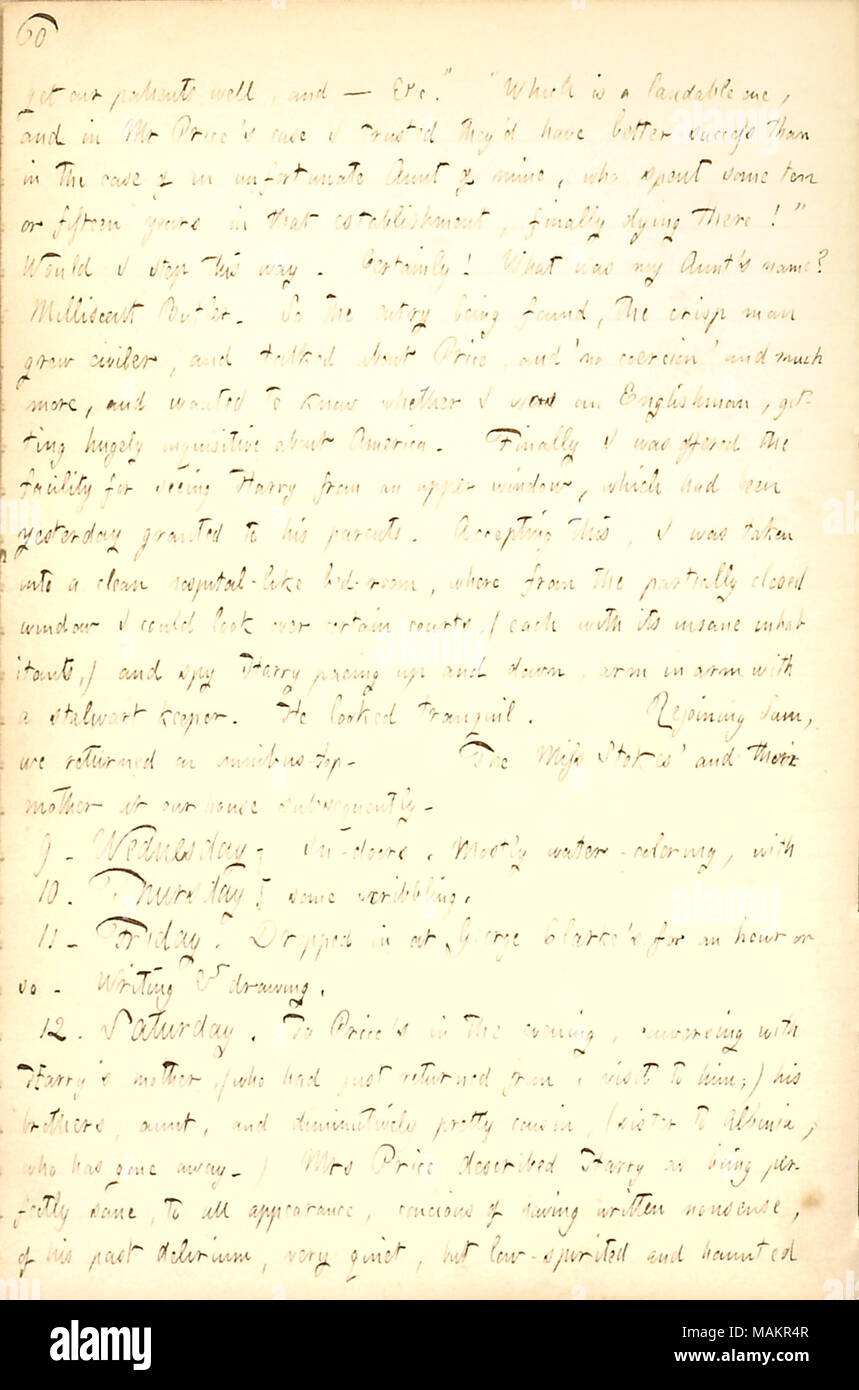 60
get our patients well, and — &c." "Which is a laudable one,
and in Mr Price's case I trusted they'd have better success than
in the case of an unfortunate Aunt of mine, who spent some ten
or fifteen years in that establishment, finally dying there!"
Would I step this way. Certainly! What was my Aunt's name?
Milliscent Butler. So the entry being found, the crisp man
grew civiler, and talked about Price, and 'no coercion' and much
more, and wanted to know whether I were an Englishman, get-
ting hugely inquisitive about America. Finally I was offered the
facility for seeing Harry from an upper window, which had been
yesterday granted to his parents. Accepting this, I was taken
into a clean hospital-like bed-room, where from the partially closed
window I could look over certain courts, (each with its insane inhab
itants,) and spy Harry pacing up and down, arm in arm with
a stalwart keeper. He looked tranquil. Rejoining Sam,
we returned on omnibus-top. The Miss Stokes' and their
mother at our house subsequently.
9. Wednesday. In-doors. Mostly water-coloring, with
10. Thursday. some scribbling.
11. Friday. Dropped in at George Clarke's for an hour or
so. Writing & drawing.
12. Saturday. To Price's in the evening, conversing with
Harry's mother, (who had just returned from a visit to him;) his
brothers, aunt, and diminutively pretty cousin, (sister to Albinia,
who has gone away.) Mrs Price described Harry as being per-
fectly sane, to all appearance, concious of having written nonsense,
of his past delirium, very quiet, but low-spirited and haunted
alamy
Image ID: MAKR4R
www.alamy.com